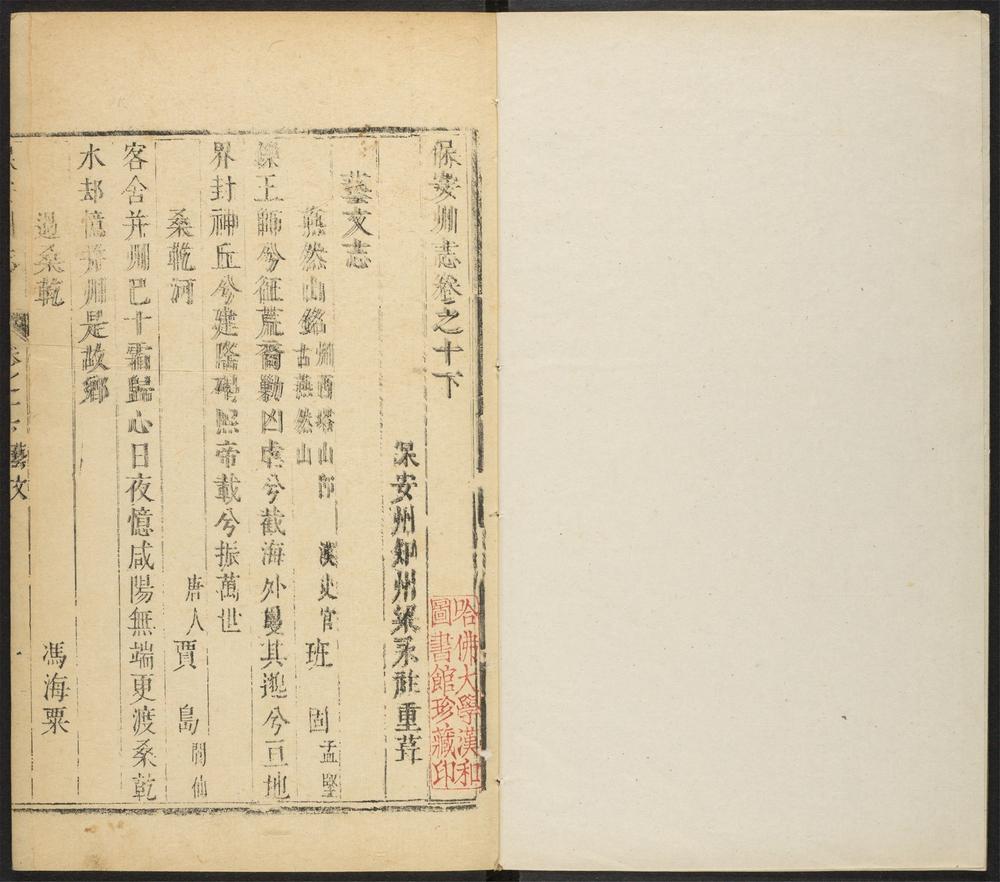 保安州志卷之十下
保安州知州梁永祚重葺
藝文志
燕然山銘 州西塔山卽古燕然山 漢史官 班固 孟堅
鑠王師兮征荒裔勦凶虐兮截海外敻其邈兮亘地
界封神丘兮建隆碣熙帝載兮振萬世
桑乾河 唐人 賈島 閬仙
客舍并州巳十霜歸心日夜憶咸陽無端更渡桑乾
水却憶并州是故鄉
過桑乾 馮海粟
卷之十下藝文
哈佛大學漢和
圖書館珍藏印